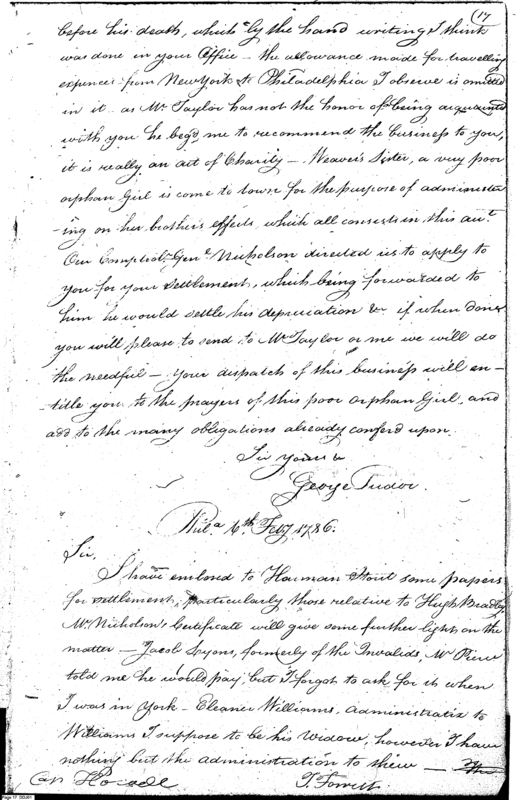 (17
before his death, which by the hand writing I think
was done in your Office — the allowance made for travelling
expences from New York to Philadelphia I observe is omitted
in it as Mr Taylor has not the honor of being acquainted
with you he beg'd me to recommend the business to you,
it is really an act of Charity — Weaver's Sister, a very poor
orphan Girl is come to town for the purpose of administer
-ing on her brother's effects, which all consists in this acct
Our Comptrolr Genl Nicholson directed us to apply to
you for your settlement, which being forwarded to
him he would settle his depreciation &c if when done
you will please to send to Mr Taylor or me we will do
the needful — your dispatch of this business will en-
-title you to the prayers of this poor orphan Girl, and
add to the many obligations already conferd upon
Sir yours &
George Tudor.
Phila 16th Feby 1786.
Sir,
I have enclosed to Harman Stout some papers
for settlement, particularly those relative to Hugh Bradley
Mr Nicholson's Certificate will give some further light on the
matter — Jacob Lyons, formerly of the Invalids, Mr Pierce
told me he would pay, but I forgot to ask for it when
I was in York — Eleanor Williams, administratix to
Williams I suppose to be his Widow, however I have
nothing but the administration to shew —
Cap Howell
Page 17 DOJ01